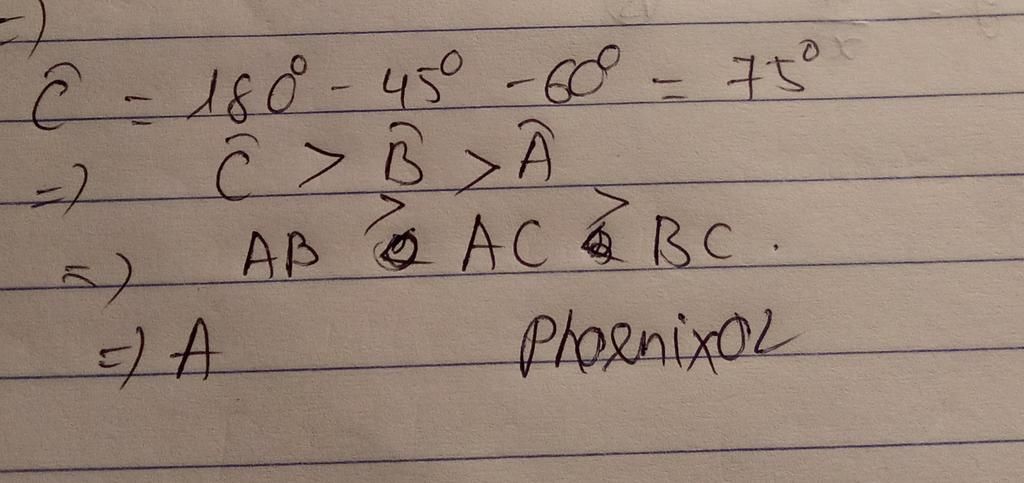 =)
Ĉ = 180° - 45° - 60° = 75°
=) Ĉ > B̂ > Â
=) AB > AC > BC.
=) A Phoenix02